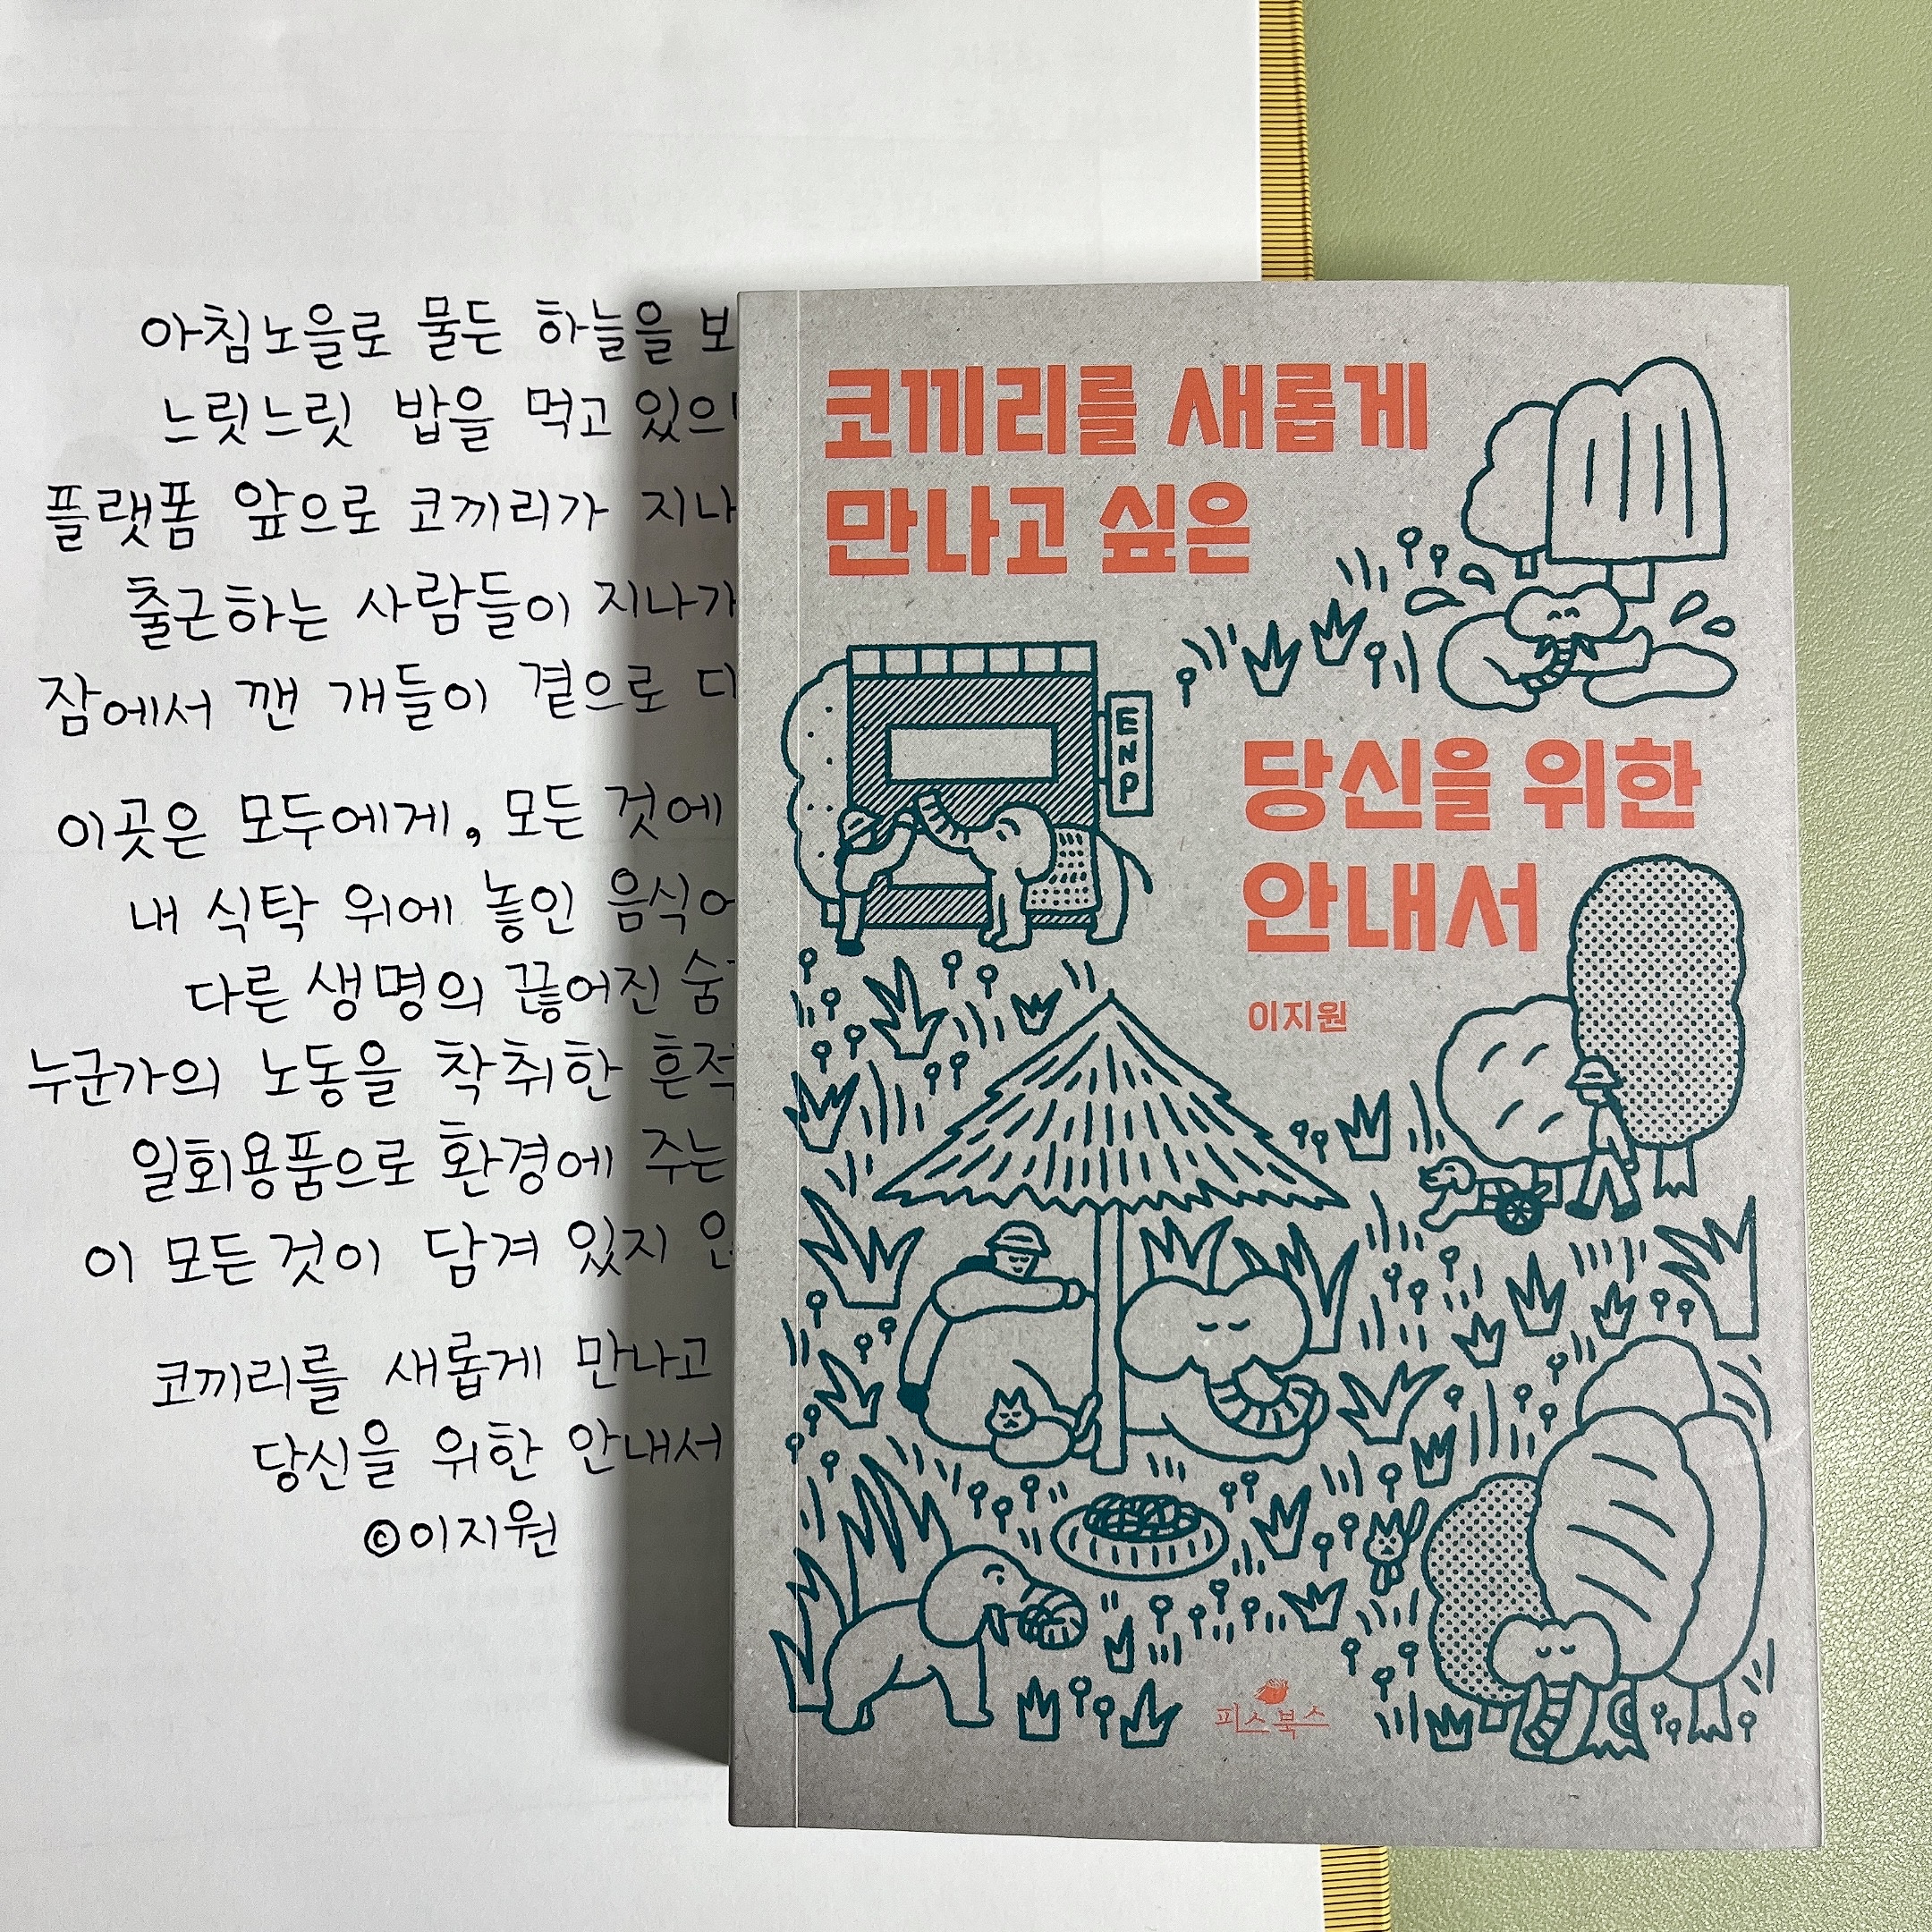 아침노을로 물든 하늘을
느릿느릿 밥을 먹고
플랫폼 앞으로 코끼리가
출근하는 사람들이
잠에서 깬 개들이 곁으로
이곳은 모두에게, 모든 것에
내 식탁 위에 놓인
다른 생명의 끊어진
누군가의 노동을 착취한
일회용품으로 환경에 주는
이 모든 것이 담겨 있지
코끼리를 새롭게 만나고
당신을 위한 안내서
©이지원
코끼리를 새롭게
만나고 싶은
당신을 위한
안내서
이지원
ENP
피스북스